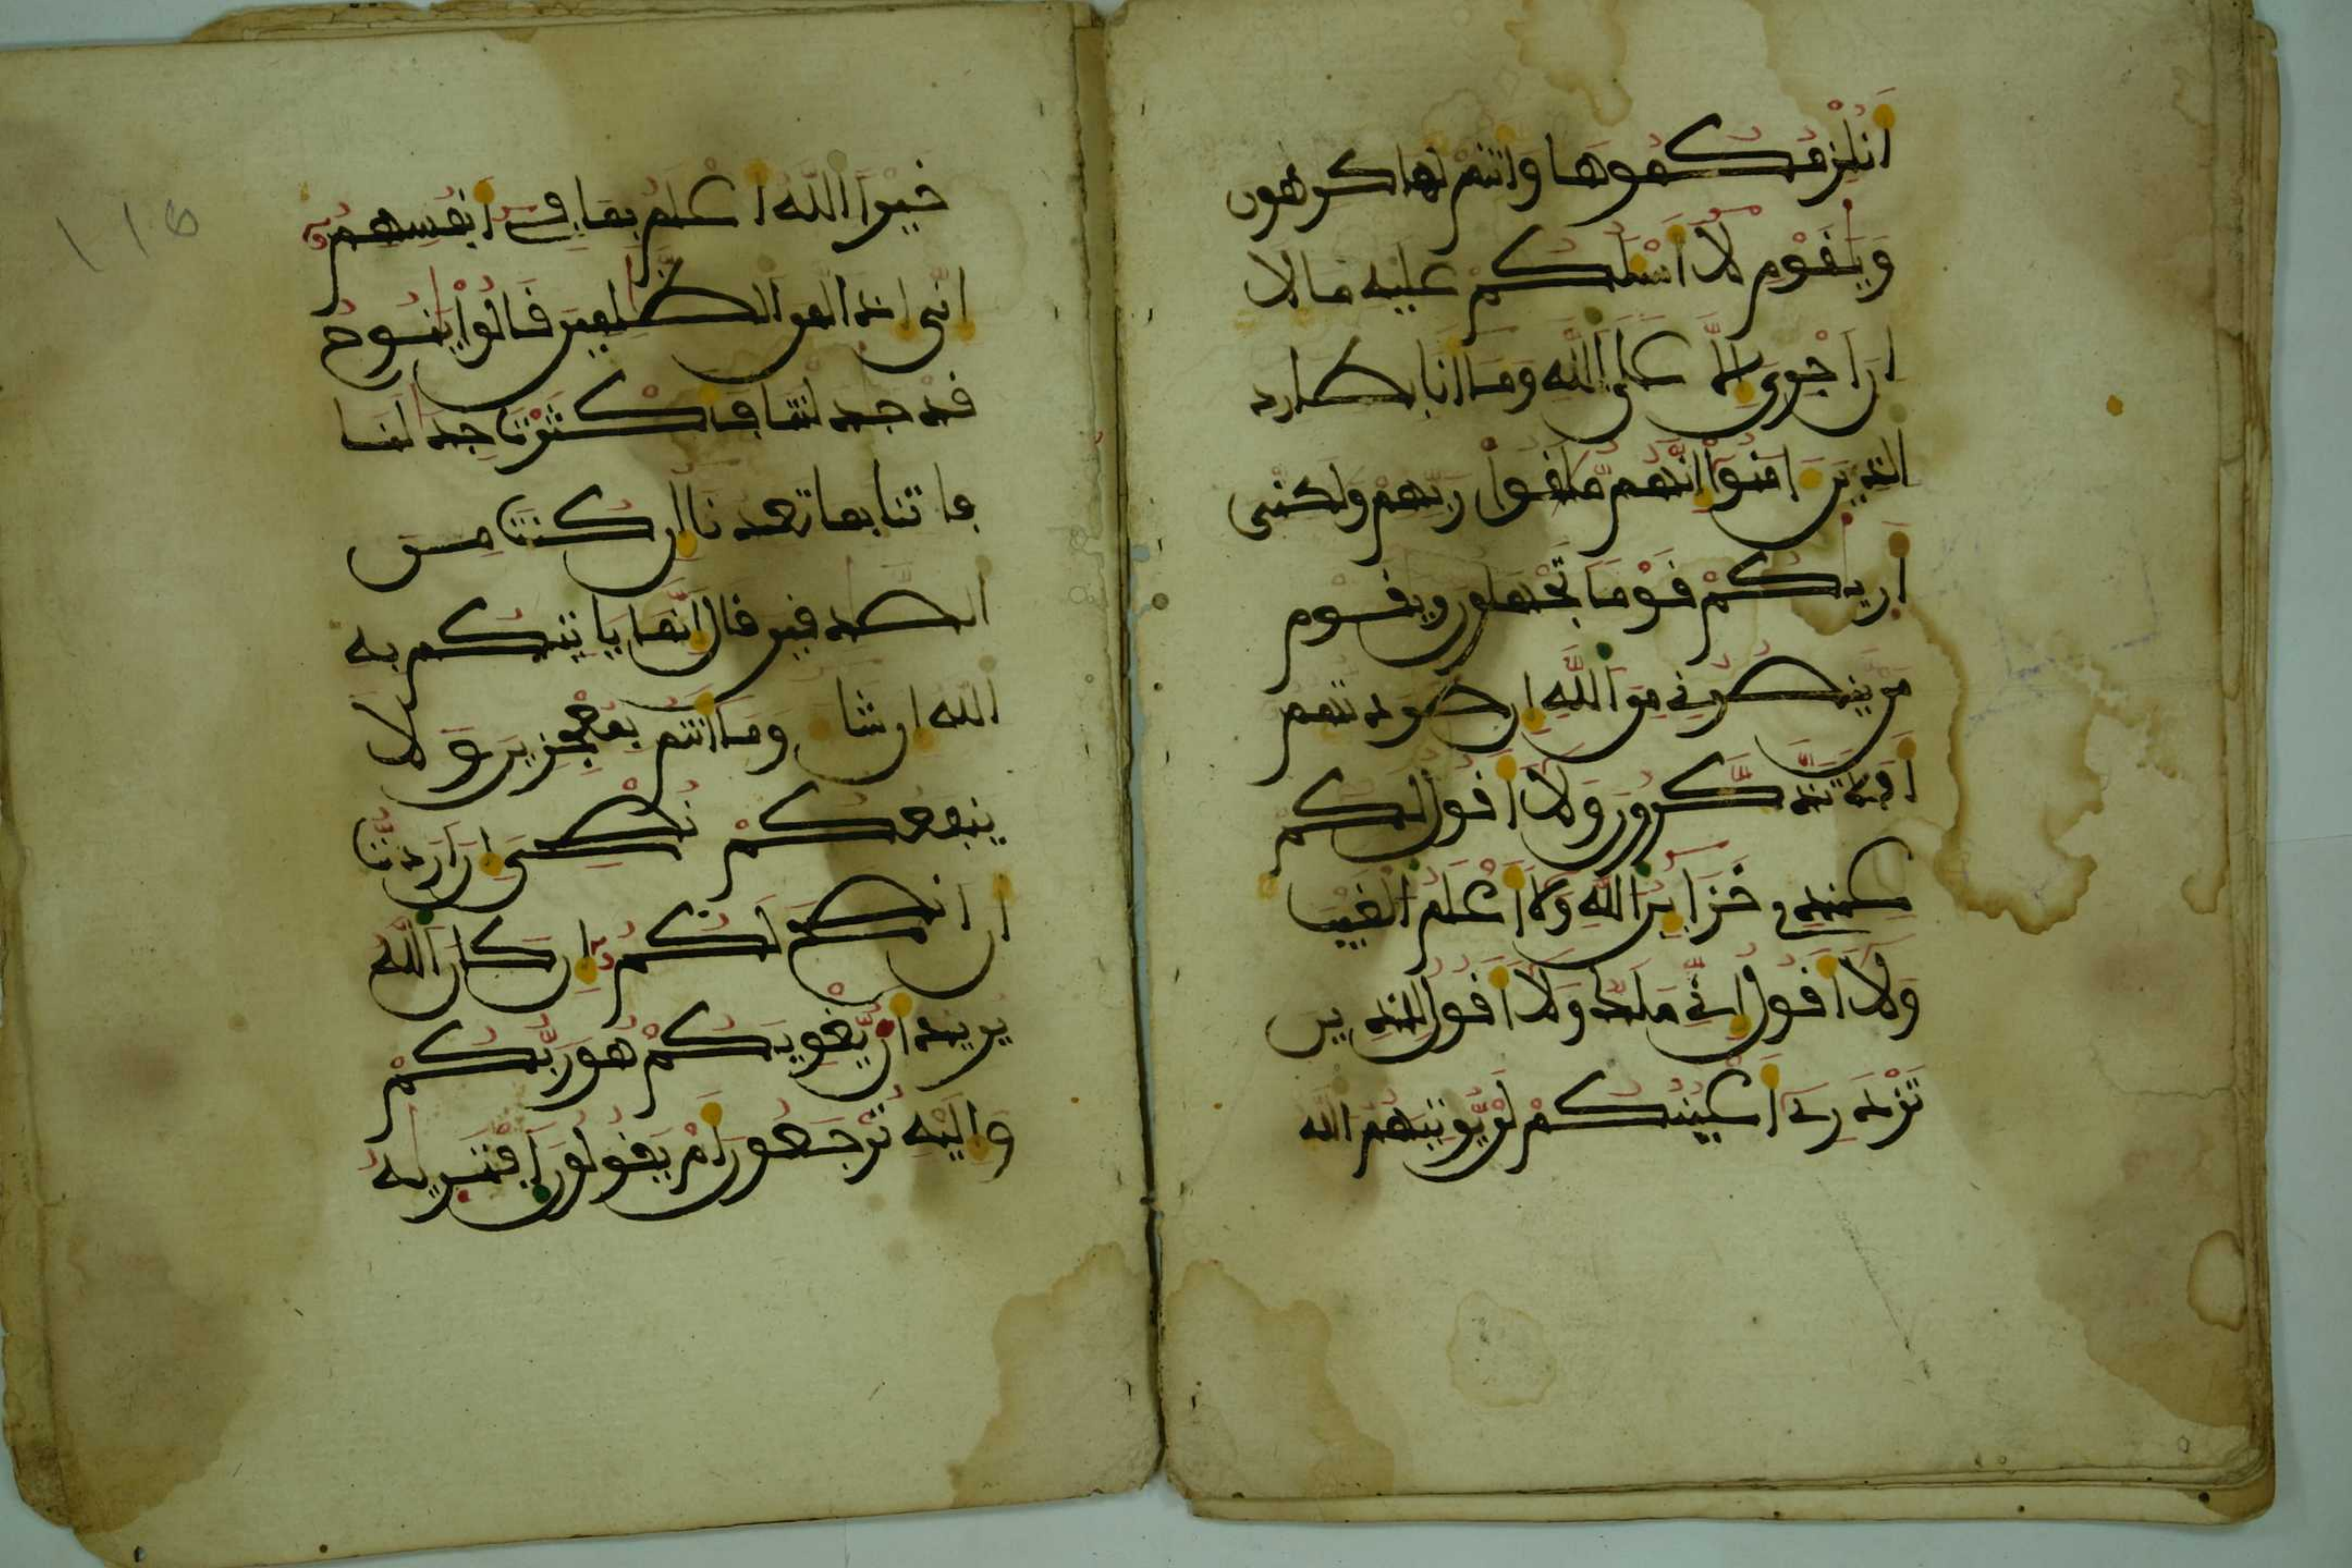 انلزمكموها وانتم لها كرهون
ويقوم لا اسلكم عليه مالا
ان اجري الا على الله وما انا بطارد
الذين امنوا انهم ملقوا ربهم ولكني
اريكم قوما تجهلون ويقوم
من ينصرني من الله ان طردتهم
افلا تذكرون ولا اقول لكم
عندي خزاين الله ولا اعلم الغيب
ولا اقول اني ملك ولا اقول للذين
تزدري اعينكم لن يوتيهم الله
خيرا الله اعلم بما في انفسهم
اني اذا لمن الظلمين قالوا ينوح
قد جدلتنا فاكثرت جدلنا
فاتنا بما تعدنا ان كنت من
الصدقين قال انما ياتيكم به
الله ان شا وما انتم بمعجزين ولا
ينفعكم نصحي ان اردت
ان انصح لكم ان كان الله
يريد ان يغويكم هو ربكم
واليه ترجعون ام يقولون افتريه
116